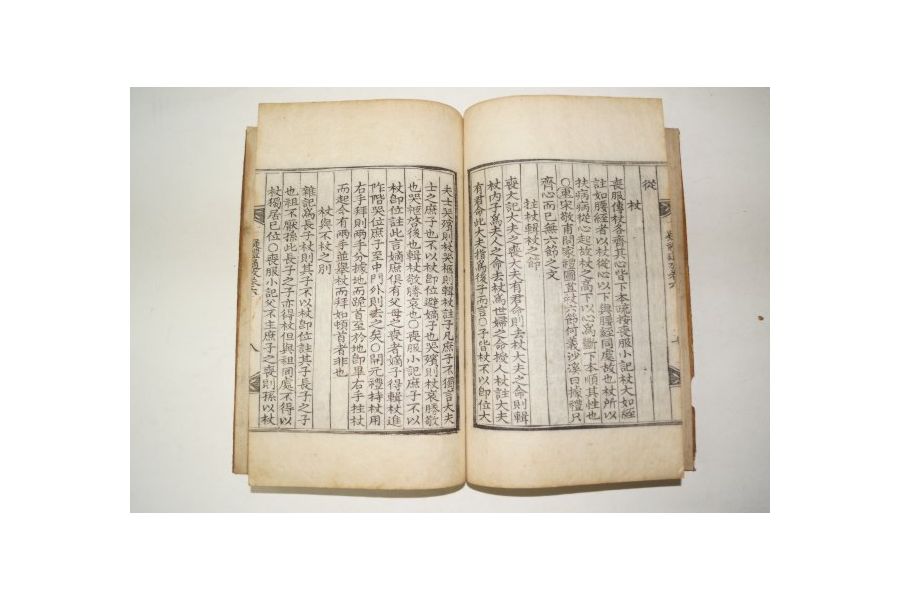 從
杖
喪服傳杖各齊其心皆下本疏按喪服小記杖大如絰
註如腰絰者以杖從心以下與腰絰同處故也杖所以
扶病病從心起故杖之高下以心爲斷下本順其性也
○東宋敬甫問家禮圖苴杖六節何義沙溪曰據禮只
齊心而已無六節之文
拄杖輯杖之節
喪大記大夫之喪大夫有君命則去杖大夫之命則輯
杖內子爲夫人之命去杖爲世婦之命授人杖註大夫
有君命此大夫指爲後子而言○子皆杖不以卽位大
夫士哭殯則杖哭柩則輯杖註子凡庶子不獨言大夫
士之庶子也不以杖卽位避嫡子也哭殯則杖哀勝敬
也哭柩啓後也輯杖敬勝哀也○喪服小記庶子不以
杖卽位註此言嫡庶俱有父母之喪者嫡子得輯杖進
阼階哭位庶子至中門外則去之矣○開元禮持杖用
右手拜則兩手分據地而跪首至於地卽畢右手拄杖
而起今有兩手並擧杖而拜如頓首者非也
杖與不杖之別
雜記爲長子杖則其子不以杖卽位註其子長子之子
也祖不厭孫此長子之子亦得杖但與祖同處不得以
杖獨居已位○喪服小記父不主庶子之喪則孫以杖
八